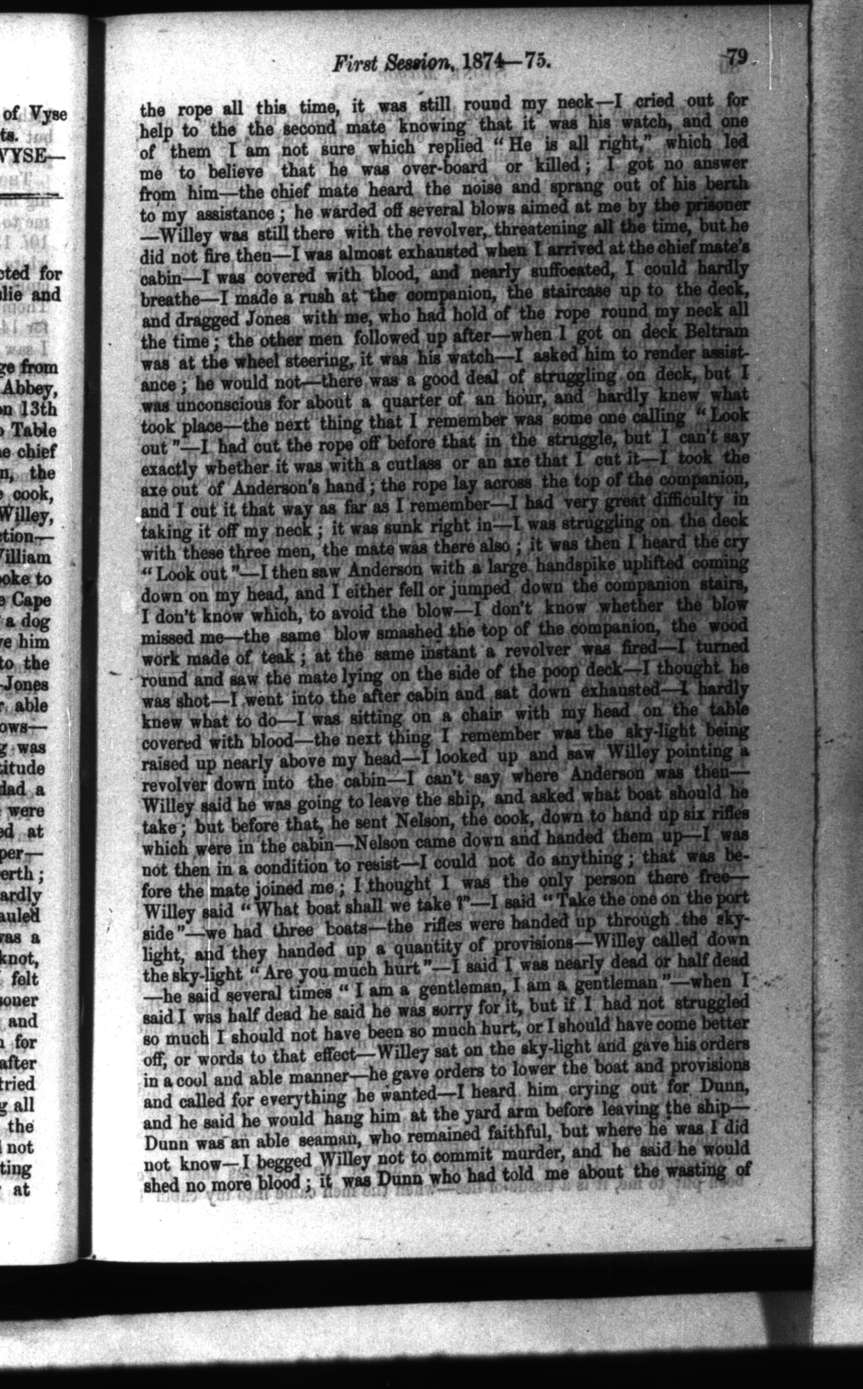 of Vyse
ts.
VYSE—
cted for
lie and
ge from
Abbey,
on 13th
o Table
e chief
n, the
cook,
Willey,
ction—
William
oke to
e Cape
a dog
ve him
to the
Jones
able
ows—
g was
titude
dad a
were
ed at
per—
erth;
ardly
auled
vas a
knot,
felt
soner
and
for
after
tried
g all
the
not
ting
at
First Session, 1874—75. 79
the rope all this time, it was still round my neck—I cried out for
help to the the second mate knowing that it was his watch, and one
of them I am not sure which replied "He is all right," which led
me to believe that he was over-board or killed; I got no answer
from him—the chief mate heard the noise and sprang out of his berth
to my assistance; he warded off several blows aimed at me by the prisoner
—Willey was still there with the revolver, threatening all the time, but he
did not fire then—I was almost exhausted when I arrived at the chief mate's
cabin—I was covered with blood, and nearly suffocated, I could hardly
breathe—I made a rush at the companion, the staircase up to the deck,
and dragged Jones with me, who had hold of the rope round my neck all
the time; the other men followed up after—when I got on deck Beltram
was at the wheel steering, it was his watch—I asked him to render assist-
ance; he would not—there was a good deal of struggling on deck, but I
was unconscious for about a quarter of an hour, and hardly knew what
took place—the next thing that I remember was some one calling "Look
out"—I had cut the rope off before that in the struggle, but I can't say
exactly whether it was with a cutlass or an axe that I cut it—I took the
axe out of Anderson's hand; the rope lay across the top of the companion,
and I cut it that way as far as I remember—I had very great difficulty in
taking it off my neck; it was sunk right in—I was struggling on the deck
with these three men, the mate was there also; it was then I heard the cry
"Look out"—I then saw Anderson with a large handspike uplifted coming
down on my head, and I either fell or jumped down the companion stairs,
I don't know which, to avoid the blow—I don't know whether the blow
missed me—the same blow smashed the top of the companion, the wood
work made of teak; at the same instant a revolver was fired—I turned
round and saw the mate lying on the side of the poop deck—I thought he
was shot—I went into the after cabin and sat down exhausted—I hardly
knew what to do—I was sitting on a chair with my head on the table
covered with blood—the next thing I remember was the sky-light being
raised up nearly above my head—I looked up and saw Willey pointing a
revolver down into the cabin—I can't say where Anderson was then—
Willey said he was going to leave the ship, and asked what boat should he
take; but before that, he sent Nelson, the cook, down to hand up six rifles
which were in the cabin—Nelson came down and handed them up—I was
not then in a condition to resist—I could not do anything; that was be-
fore the mate joined me; I thought I was the only person there free—
Willey said "What boat shall we take?"—I said "Take the one on the port
side"—we had three boats—the rifles were handed up through the sky-
light, and they handed up a quantity of provisions—Willey called down
the sky-light "Are you much hurt"—I said I was nearly dead or half dead
—he said several times "I am a gentleman, I am a gentleman"—when I
said I was half dead he said he was sorry for it, but if I had not struggled
so much I should not have been so much hurt, or I should have come better
off, or words to that effect—Willey sat on the sky-light and gave his orders
in a cool and able manner—he gave orders to lower the boat and provisions
and called for everything he wanted—I heard him crying out for Dunn,
and he said he would hang him at the yard arm before leaving the ship—
Dunn was an able seaman, who remained faithful, but where he was I did
not know—I begged Willey not to commit murder, and he said he would
shed no more blood; it was Dunn who had told me about the wasting of